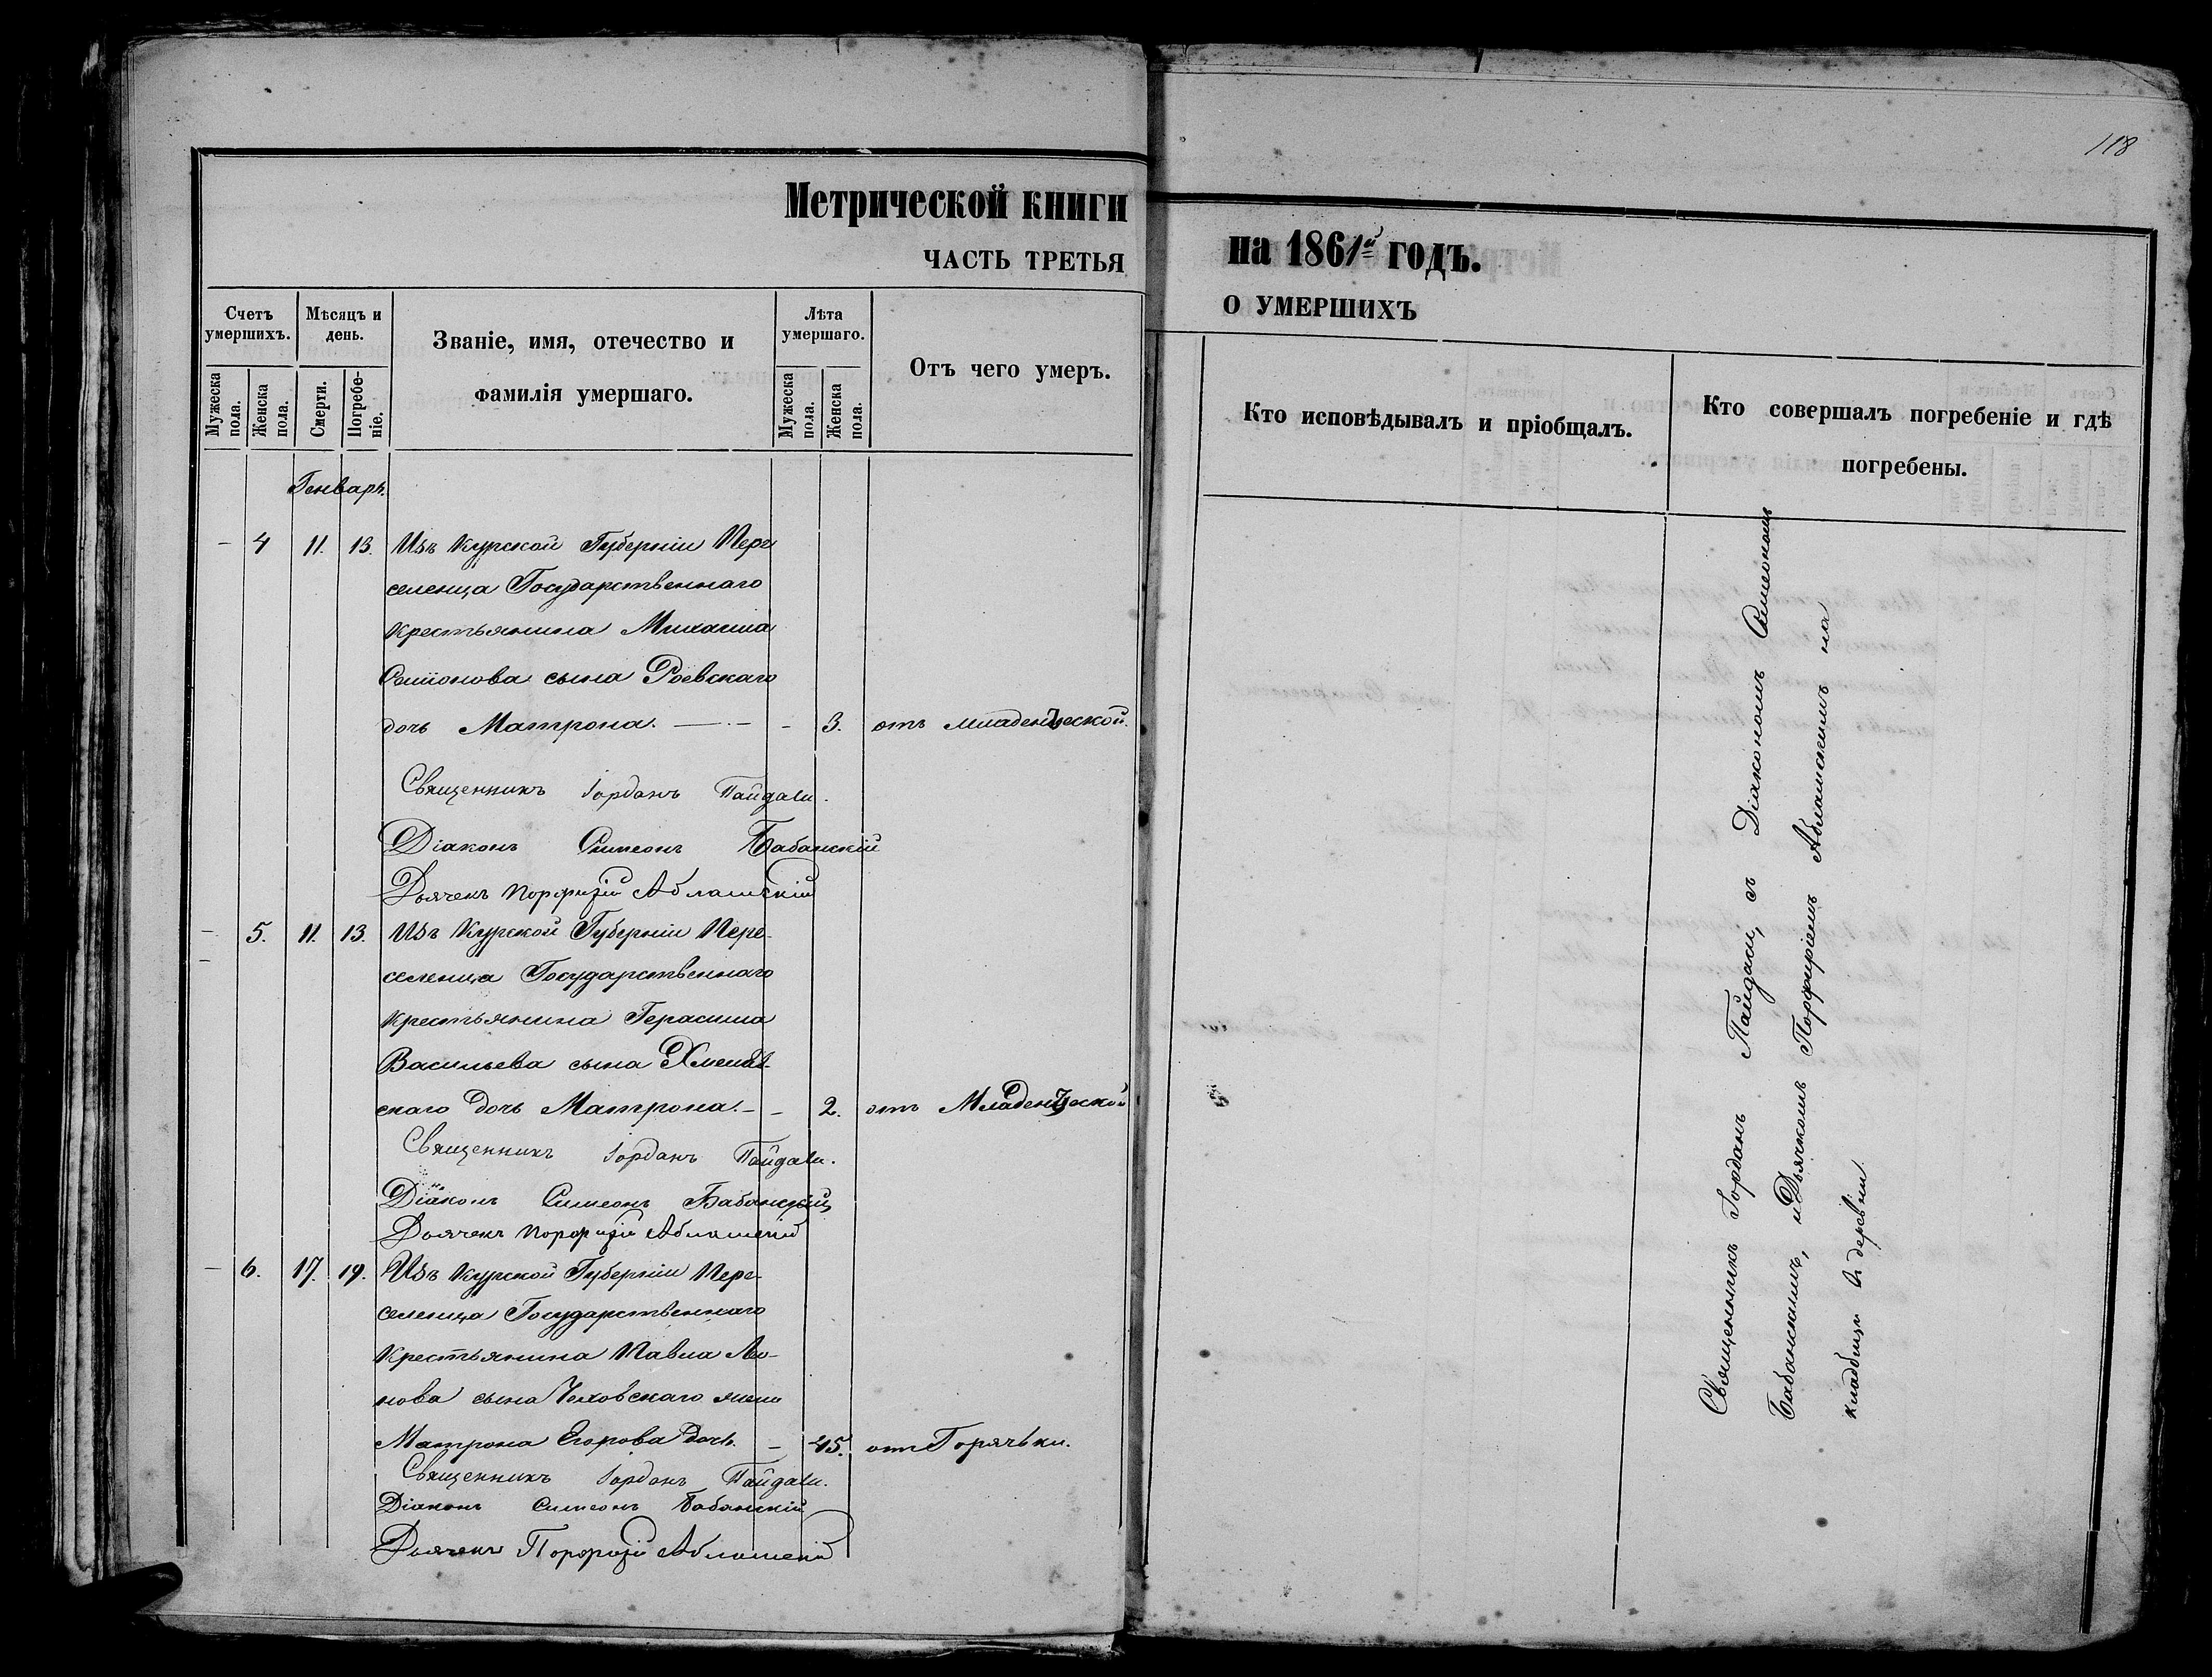 118
Метрической книги
на 1861й годъ.
ЧАСТЬ ТРЕТЬЯ
О УМЕРШИХЪ
Счетъ умершихъ.
Мѣсяцъ и день.
Званіе, имя, отечество и фамилія умершаго.
Лѣта умершаго.
Отъ чего умеръ.
Кто исповѣдывалъ и пріобщалъ.
Кто совершалъ погребеніе и гдѣ погребены.
Мужеска пола.
Женска пола.
Смерти.
Погребе-ніе.
Мужеска пола.
Женска пола.
Генварь.
— 4 11. 13. Изъ Курской Губерніи Пере
селенца Государственнаго
Крестьянина Михаила
Симіонова сына Роевскаго
дочь Матрона. — — 3. отъ младенческой.
Священникъ Іорданъ
Діаконъ Симеонъ Бабанскій
Дьячекъ Порфирій
— 5. 11. 13. Изъ Курской Губерніи Пере-
селенца Государственнаго
Крестьянина Герасима
Васильева сына
скаго дочь Матрона. — — 2. отъ Младенческой
Священникъ Іорданъ
Діаконъ Симеонъ Бабанскій
Дьячекъ Порфирій
— 6. 17. 19. Изъ Курской Губерніи Пере-
селенца Государственнаго
Крестьянина Павла Лео-
нова сына жена
Матрона Егорова дочь. — 45. отъ Горячьки.
Священникъ Іорданъ
Діаконъ Симеонъ Бабанскій
Дьячекъ Порфирій
Священникъ Іорданъ съ Діакономъ Симеономъ
Бабанскимъ, и Дьячкомъ Порфиріемъ на
кладбищи въ деревни.